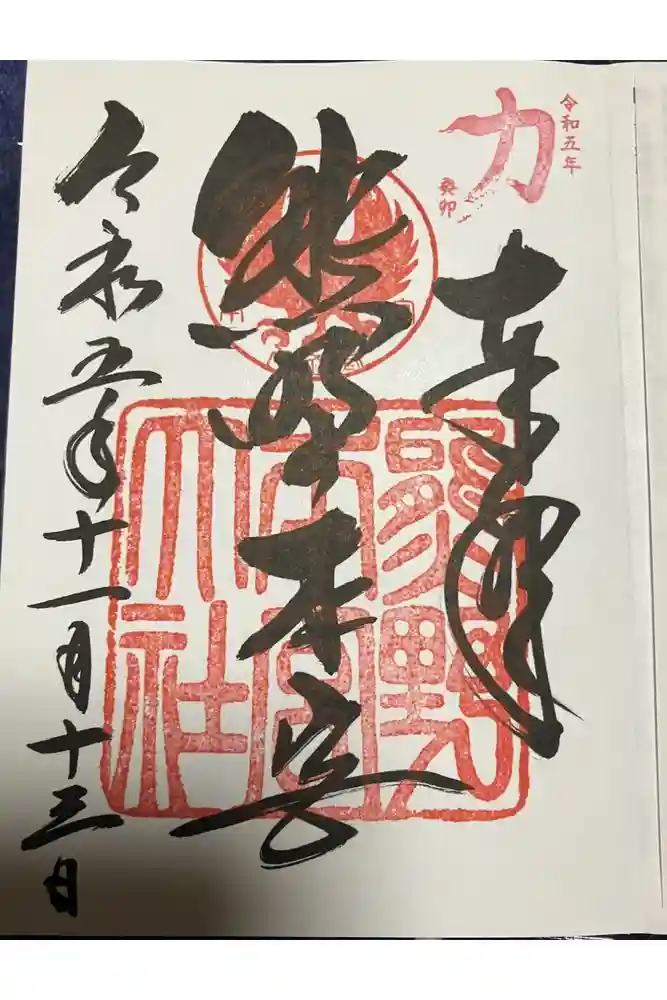 令和五年
力
癸卯
奉拝
熊野本宮
熊野本宮大社
令和五年十一月十三日